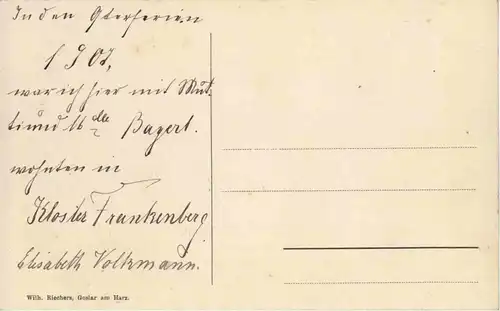 In den Osterferien
1907,
war ich hier mit Mut-
ti und Bayert.
wohnten in
Kloster Frankenberg
Elisabeth Volkmann.
Wilh. Riechers, Goslar am Harz.